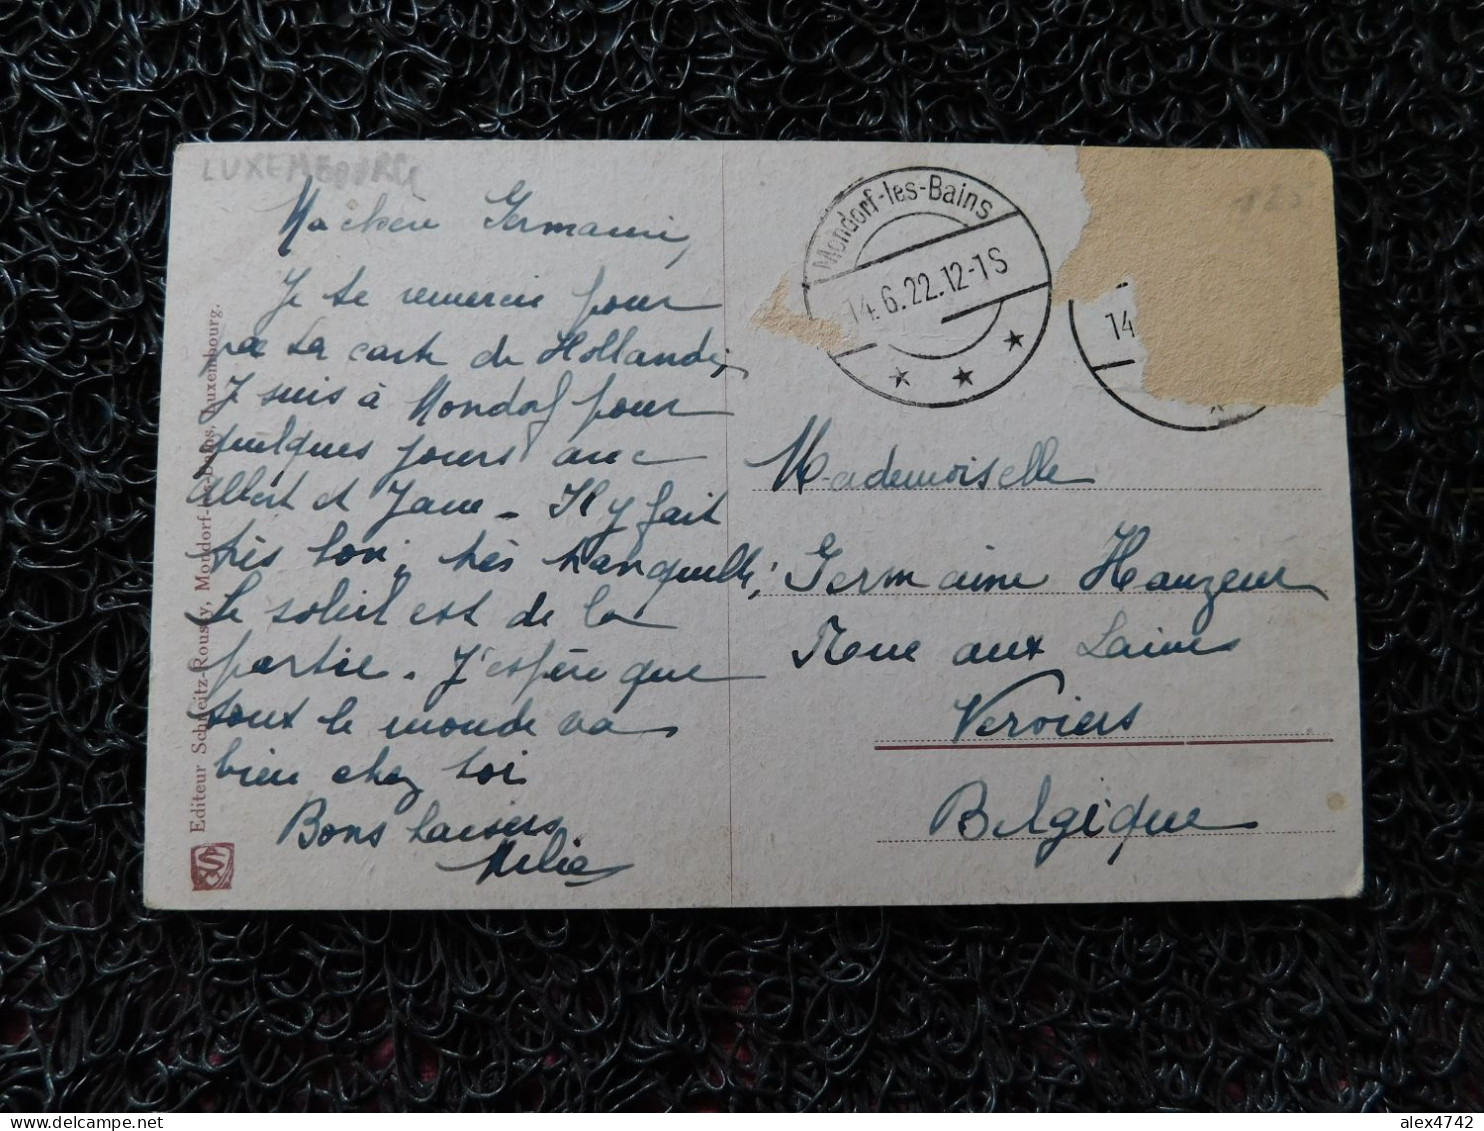 LUXEMBOURG
Ma chère Germaine,
Je te remercie pour
ta carte de Hollande,
Je suis à Mondorf pour
quelques jours avec
Albert et Jane - Il y fait
très bon, très tranquille,
Le soleil est de la
partie. J'espère que
tout le monde va
bien chez toi
Bons baisers
Mondorf-les-Bains
14.6.22.12-1S
14
125
Mademoiselle
Germaine Hauzeur
Rue aux Laines
Verviers
Belgique
Editeur Schneitz-Roussy, Mondorf-les-Bains, Luxembourg.
alex4742